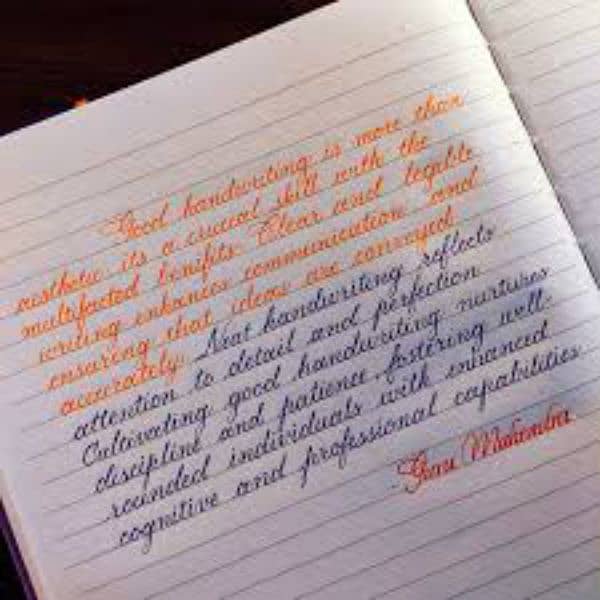 Good handwriting is more than
aesthetic its a crucial skill with the
multifacted benifits. Clear and legible
writing enhances communication and
ensuring that ideas are conveyed
accurately. Neat handwriting reflects
attention to detail and perfection
Cultivating good handwriting nurtures
discipline and patience fostering well-
rounded individuals with enhanced
cognitive and professional capabilities
Mahendra